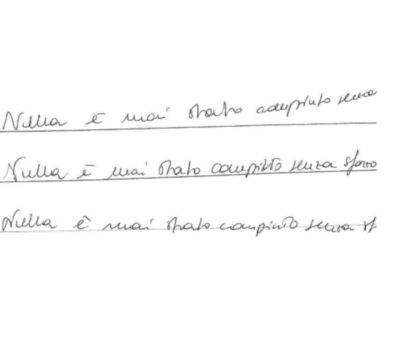 Nulla è mai stato compiuto senza
Nulla è mai stato compiuto senza sforzo
Nulla è mai stato compiuto senza sf